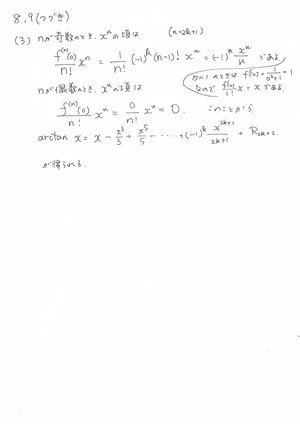 8.9(つづき)
(3) nが奇数のとき, xⁿの項は (n=2k+1)
f⁽ⁿ⁾(0)/n! xⁿ = 1/n! (-1)ᵏ (n-1)! xⁿ = (-1)ᵏ xⁿ/n である
n=1のときは f'(0)=1/(0²+1)=1
なので f'(0)/1! x = x である.
nが偶数のとき, xⁿの項は
f⁽ⁿ⁾(0)/n! xⁿ = 0/n! xⁿ = 0. このことから
arctan x = x - x³/3 + x⁵/5 - ····· + (-1)ᵏ x²ᵏ⁺¹/(2k+1) + R₂ₖ₊₂
が得られる.